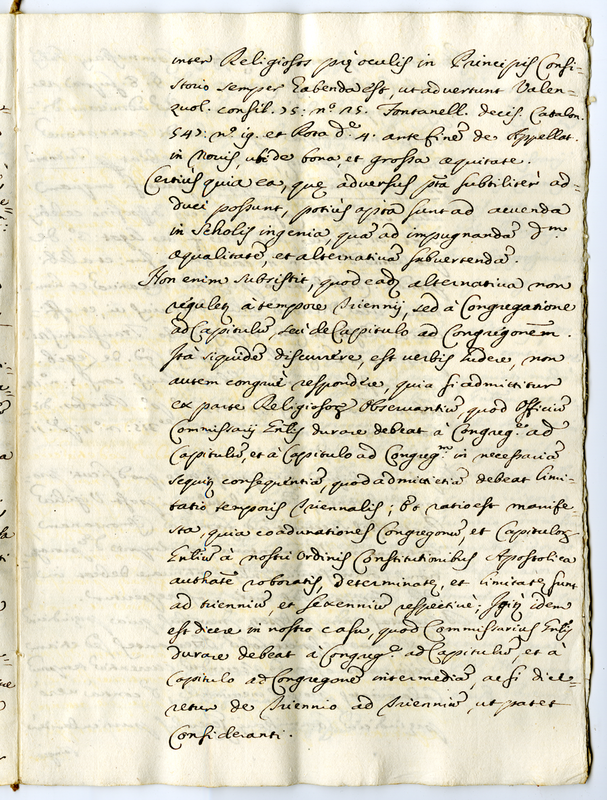 inter Religiosos præ oculis in Principis Consi=
storio semper habenda est, ut advertunt Valen=
zuol. consil. 75: nº 25. Fontanell. decis. Catalon.
547. nº 19. et Rota dº 4. ante finẽ de Appellat.
in novis ubi de bona, et grossa æquitate.
Certiùs quia ea, quę adversùs pta subtilitèr ad=
duci possunt, potiùs apta sunt ad acuenda
in scholis ingenia, quã ad impugnandã dm
æqualitatẽ, et alternativã subvertendã.
Non enim subsistit, quod eadẽ alternativa non
reguletʳ à tempore Triennij, sed à Congregatione
ad Capitulũ, seu de Capitulo ad Congregõnem.
Ita siquidẽ discurrere, est verbis ludere, non
autem congruè respondère, quia si admittitur
ex parte Religiosoꝝ Observantiũ, quod Officiũ
Commissarij Gnlis durare debeat à Congreg.e ad
Capitulũ, et à Capitulo ad Congreg.m in necessariã
sequitʳ consequentiã, quod admittẽ debeat limi=
tatio temporis Triennalis; et ratio est manife=
sta, quia coadunationes Congregonũ, et Capituloꝝ
Gnliũ à nostri Ordinis Constitutionibus Apostolica
authãte roboratis, determinatę, et limitatę sunt
ad trienniũ, et sexenniũ respectivè; Igitʳ idem
est dicere in nostro casu, quod Commissarius Gnlis
durare debeat à Congreg.e ad Capitulũ, et à
Capitulo ad Congregonẽ intermediã, ac si dice=
retur de Triennio ad Trienniũ, ut patet
consideranti.